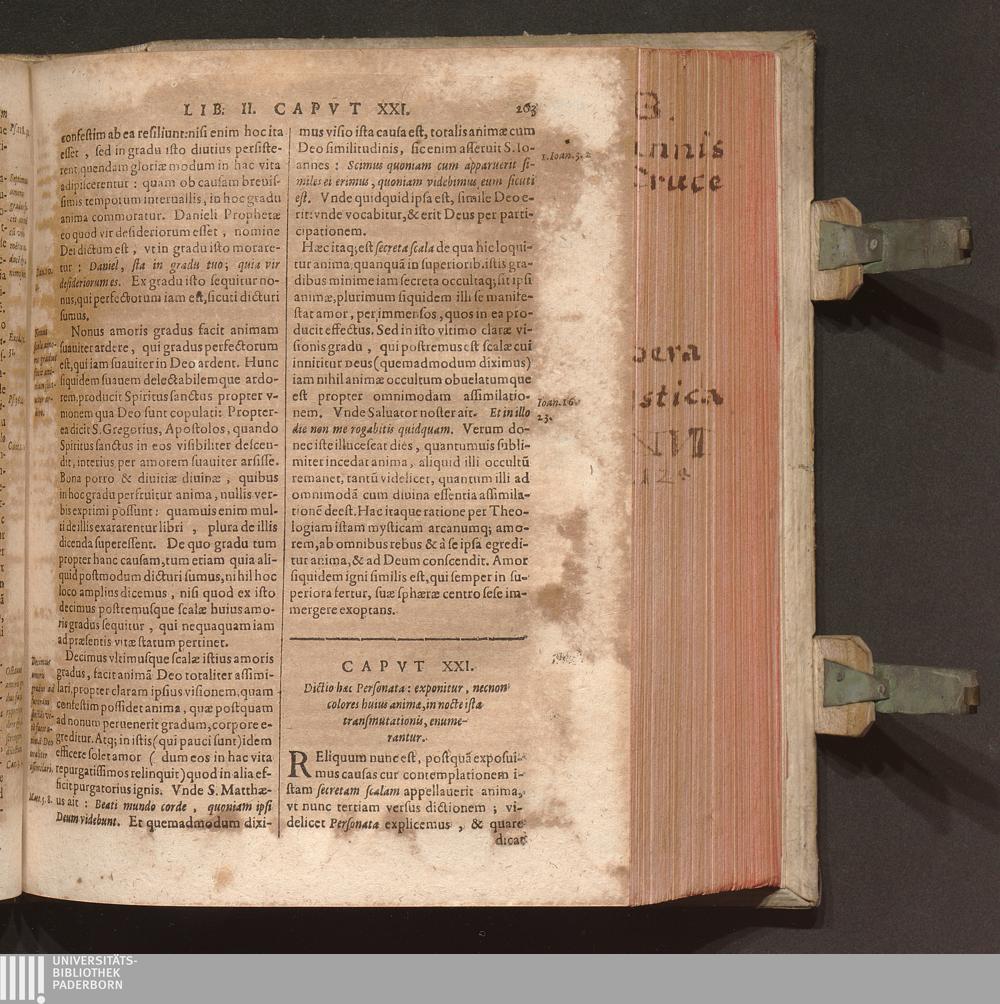 LIB. II. CAPVT XXI.
263
confestim ab ea resiliunt: nisi enim hoc ita
esset, sed in gradu isto diutius persiste-
rent quendam gloriæ modum in hac vita
adipiscerentur: quam ob causam breuis-
simis temporum interuallis, in hoc gradu
anima commoratur. Danieli Prophetæ
eo quod vir desideriorum esset, nomine
Dei dictum est, vt in gradu isto morare-
tur: Daniel, sta in gradu tuo; quia vir
desideriorum es. Ex gradu isto sequitur no-
nus, qui perfectorum iam est, sicuti dicturi
sumus.
Nonus amoris gradus facit animam
suauiter ardere, qui gradus perfectorum
est, qui iam suauiter in Deo ardent. Hunc
siquidem suauem delectabilemque ardo-
rem, producit Spiritus sanctus propter v-
nionem qua Deo sunt copulati: Propter-
ea dicit S. Gregorius, Apostolos, quando
Spiritus sanctus in eos visibiliter descen-
dit, interius per amorem suauiter arsisse.
Bona porro & diuitiæ diuinæ, quibus
in hoc gradu perfruitur anima, nullis ver-
bis exprimi possunt: quamuis enim mul-
ti de illis exararentur libri, plura de illis
dicenda superessent. De quo gradu tum
propter hanc causam, tum etiam quia ali-
quid postmodum dicturi sumus, nihil hoc
loco amplius dicemus, nisi quod ex isto
decimus postremusque scalæ huius amo-
ris gradus sequitur, qui nequaquam iam
ad præsentis vitæ statum pertinet.
Decimus vltimusque scalæ istius amoris
gradus, facit animā Deo totaliter assimi-
lari, propter claram ipsius visionem, quam
confestim possidet anima, quæ postquam
ad nonum peruenerit gradum, corpore e-
greditur. Atq; in istis (qui pauci sunt) idem
efficere solet amor (dum eos in hac vita
repurgatissimos relinquit) quod in alia ef-
ficit purgatorius ignis. Vnde S. Matthæ-
us ait: Beati mundo corde, quoniam ipsi
Deum videbunt. Et quemadmodum dixi-
Matt. 5. 8.
mus visio ista causa est, totalis animæ cum
Deo similitudinis, sic enim asseruit S. Io-
annes: Scimus quoniam cum apparuerit si-
miles ei erimus, quoniam videbimus eum sicuti
est. Vnde quidquid ipsa est, simile Deo e-
rit: vnde vocabitur, & erit Deus per parti-
cipationem.
Hæc itaq; est secreta scala de qua hic loqui-
tur anima, quanquā in superiorib. istis gra-
dibus minime iam secreta occultaq; sit ipsi
animæ, plurimum siquidem illi se manife-
stat amor, per immensos, quos in ea pro-
ducit effectus. Sed in isto vltimo claræ vi-
sionis gradu, qui postremus est scalæ cui
innititur Deus (quemadmodum diximus)
iam nihil animæ occultum obuelatumque
est propter omnimodam assimilatio-
nem. Vnde Saluator noster ait. Et in illo
die non me rogabitis quidquam. Verum do-
nec iste illucescat dies, quantumuis subli-
miter incedat anima, aliquid illi occultū
remanet, tantū videlicet, quantum illi ad
omnimodā cum diuina essentia assimila-
tionē deest. Hac itaque ratione per Theo-
logiam istam mysticam arcanumq; amo-
rem, ab omnibus rebus & à se ipsa egredi-
tur anima, & ad Deum conscendit. Amor
siquidem igni similis est, qui semper in su-
periora fertur, suæ sphæræ centro sese im-
mergere exoptans.
1. Ioan. 3. 2
Ioan. 16.
23.
CAPVT XXI.
Dictio hæc Personata: exponitur, necnon
colores huius animæ, in nocte ista
transmutationis, enume-
rantur.
REliquum nunc est, postquā exposui-
mus causas cur contemplationem i-
stam secretam scalam appellauerit anima,
vt nunc tertiam versus dictionem; vi-
delicet Personata explicemus, & quare
dicat
B.
annis
Cruce
pera
stica
UNIVERSITÄTS-
BIBLIOTHEK
PADERBORN